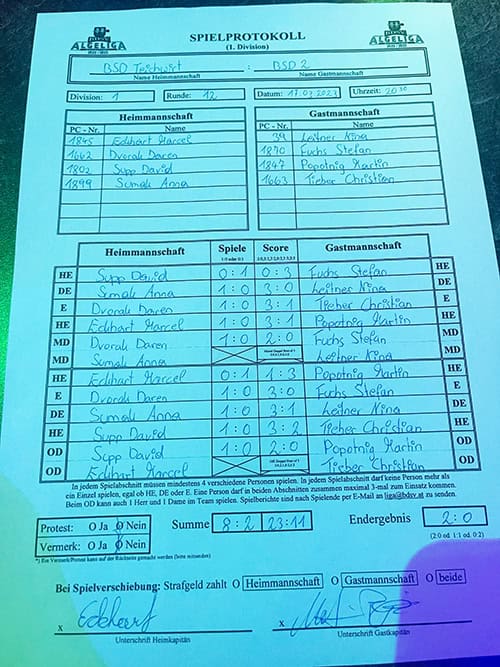 ALGELIGA
SPIELPROTOKOLL
(1. Division)
ALGELIGA
BSD Teichwirt : BSD 2
Name Heimmannschaft Name Gastmannschaft
Division: 1 Runde: 12 Datum: 17.03.2023 Uhrzeit: 20
Heimmannschaft Gastmannschaft
PC - Nr. Name PC - Nr. Name
1845 Eckhart Marcel 39 Leitner Nina
1662 Dvorak Daren 1870 Fuchs Stefan
1802 Supp David 1847 Popotnig Martin
1899 Sumak Anna 1663 Tieber Christian
Heimmannschaft Spiele Score Gastmannschaft
HE Supp David 0:1 0:3 Fuchs Stefan HE
DE Sumak Anna 1:0 3:0 Leitner Nina DE
E Dvorak Daren 1:0 3:1 Tieber Christian E
HE Eckhart Marcel 1:0 3:1 Popotnig Martin HE
MD Dvorak Daren 1:0 2:0 Fuchs Stefan MD
MD Sumak Anna Leitner Nina MD
HE Eckhart Marcel 0:1 1:3 Popotnig Martin HE
E Dvorak Daren 1:0 3:0 Fuchs Stefan E
DE Sumak Anna 1:0 3:1 Leitner Nina DE
HE Supp David 1:0 3:2 Tieber Christian HE
OD Supp David 1:0 2:0 Popotnig Martin OD
OD Eckhart Marcel Tieber Christian OD
In jedem Spielabschnitt müssen mindestens 4 verschiedene Personen spielen. In jedem Spielabschnitt darf keine Person mehr als
ein Einzel spielen, egal ob HE, DE oder E. Eine Person darf in beiden Abschnitten zusammen maximal 3-mal zum Einsatz kommen.
Beim OD kann auch 1 Herr und 1 Dame im Team spielen. Spielberichte sind nach Spielende per E-Mail an liga@bdsv.at zu senden.
Protest: O Ja O Nein Summe 8:2 23:11 Endergebnis 2:0
Vermerk: O Ja O Nein (2:0 od. 1:1 od. 0:2)
*) Ein Vermerk/Protest kann auf der Rückseite gemacht werden (bitte mitsenden)
Bei Spielverschiebung: Strafgeld zahlt O Heimmannschaft O Gastmannschaft O beide
x Eckhart x
Unterschrift Heimkapitän Unterschrift Gastkapitän